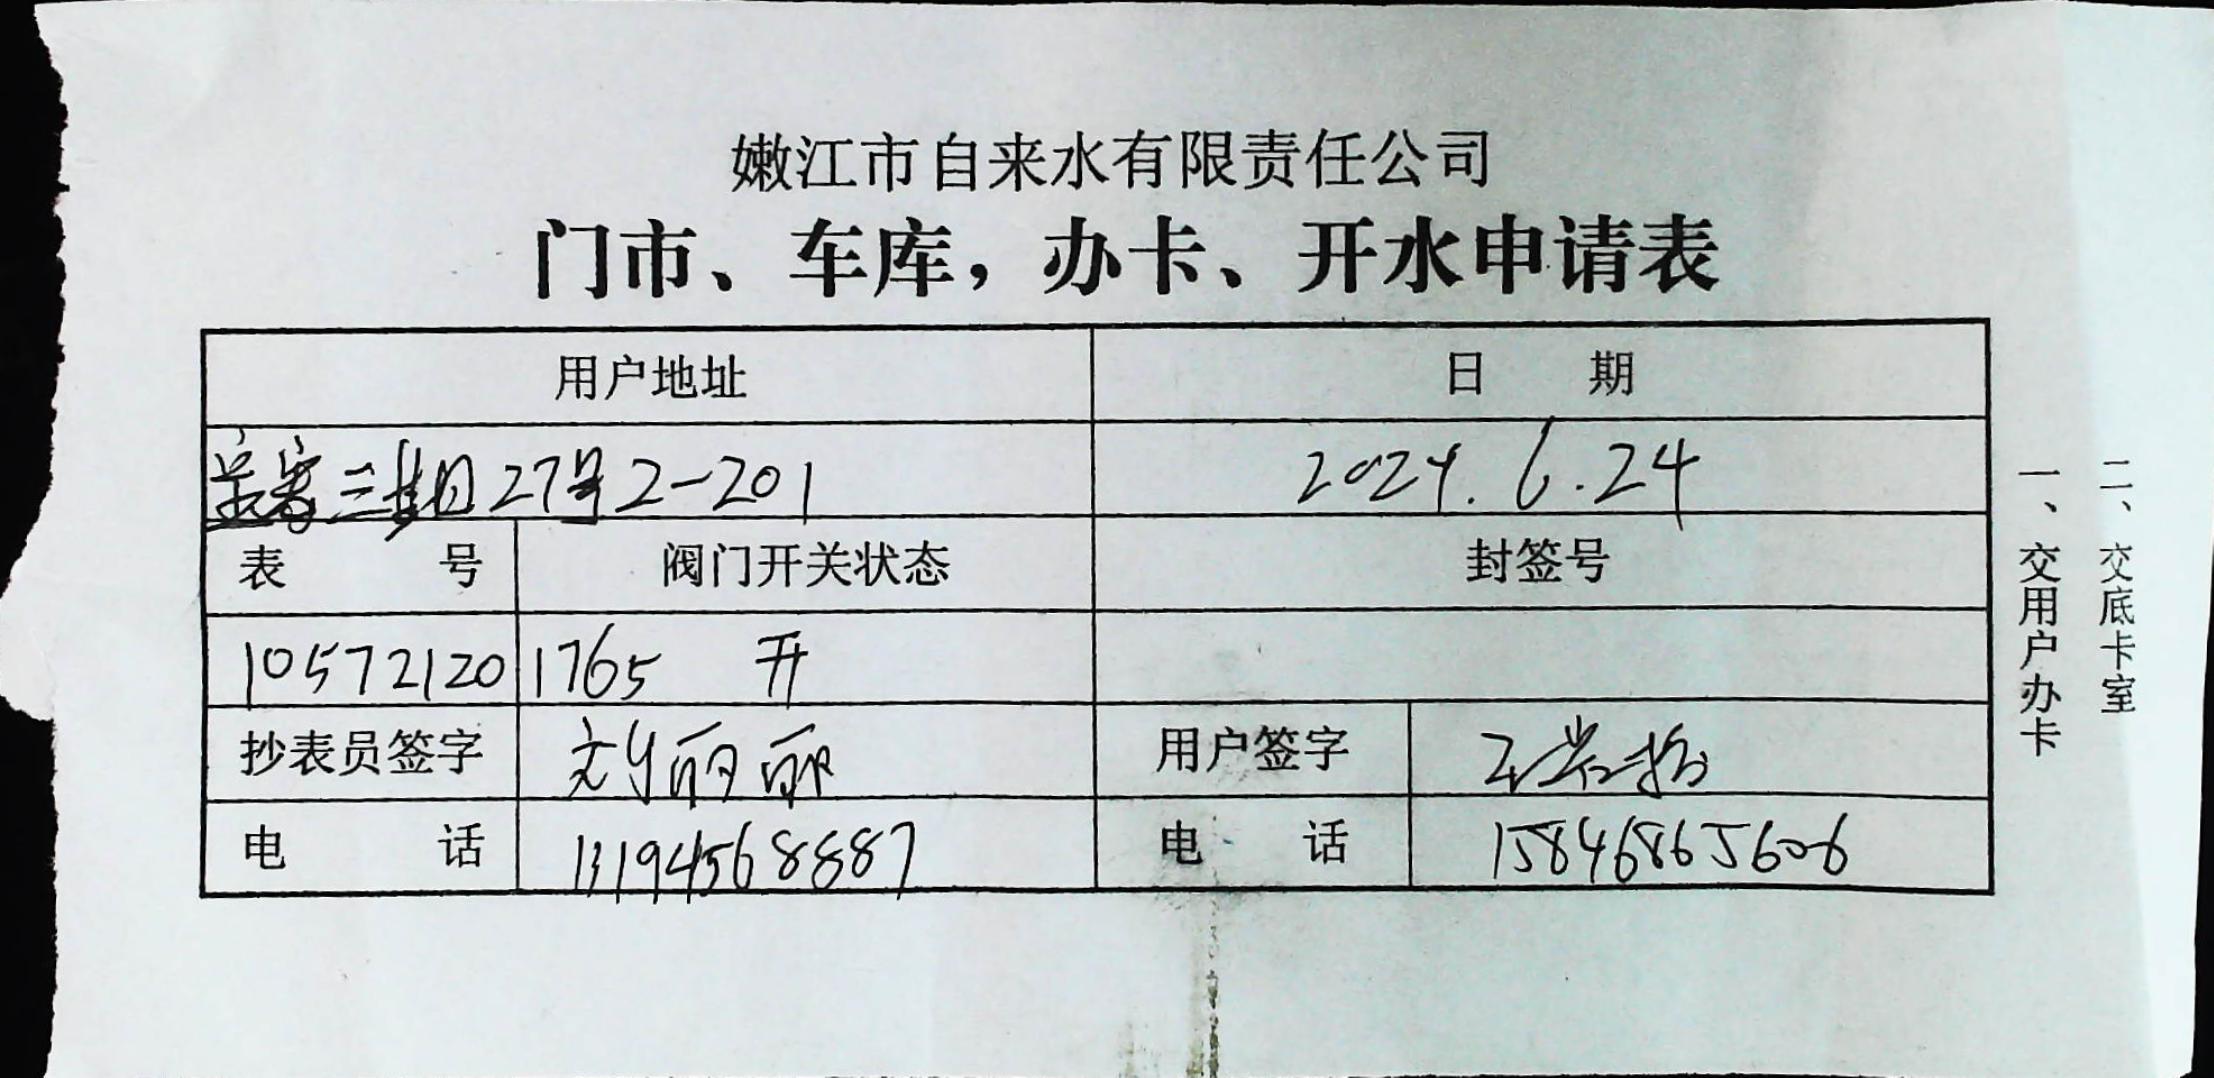 嫩江市自来水有限责任公司
门市、车库，办卡、开水申请表
用户地址 日 期
三期27号2-201 2024.6.24
表 号 阀门开关状态 封签号
10572120 1765 开
抄表员签字 刘丽丽 用户签字
电 话 13194568887 电 话 15846865606
一、交用户办卡
二、交底卡室